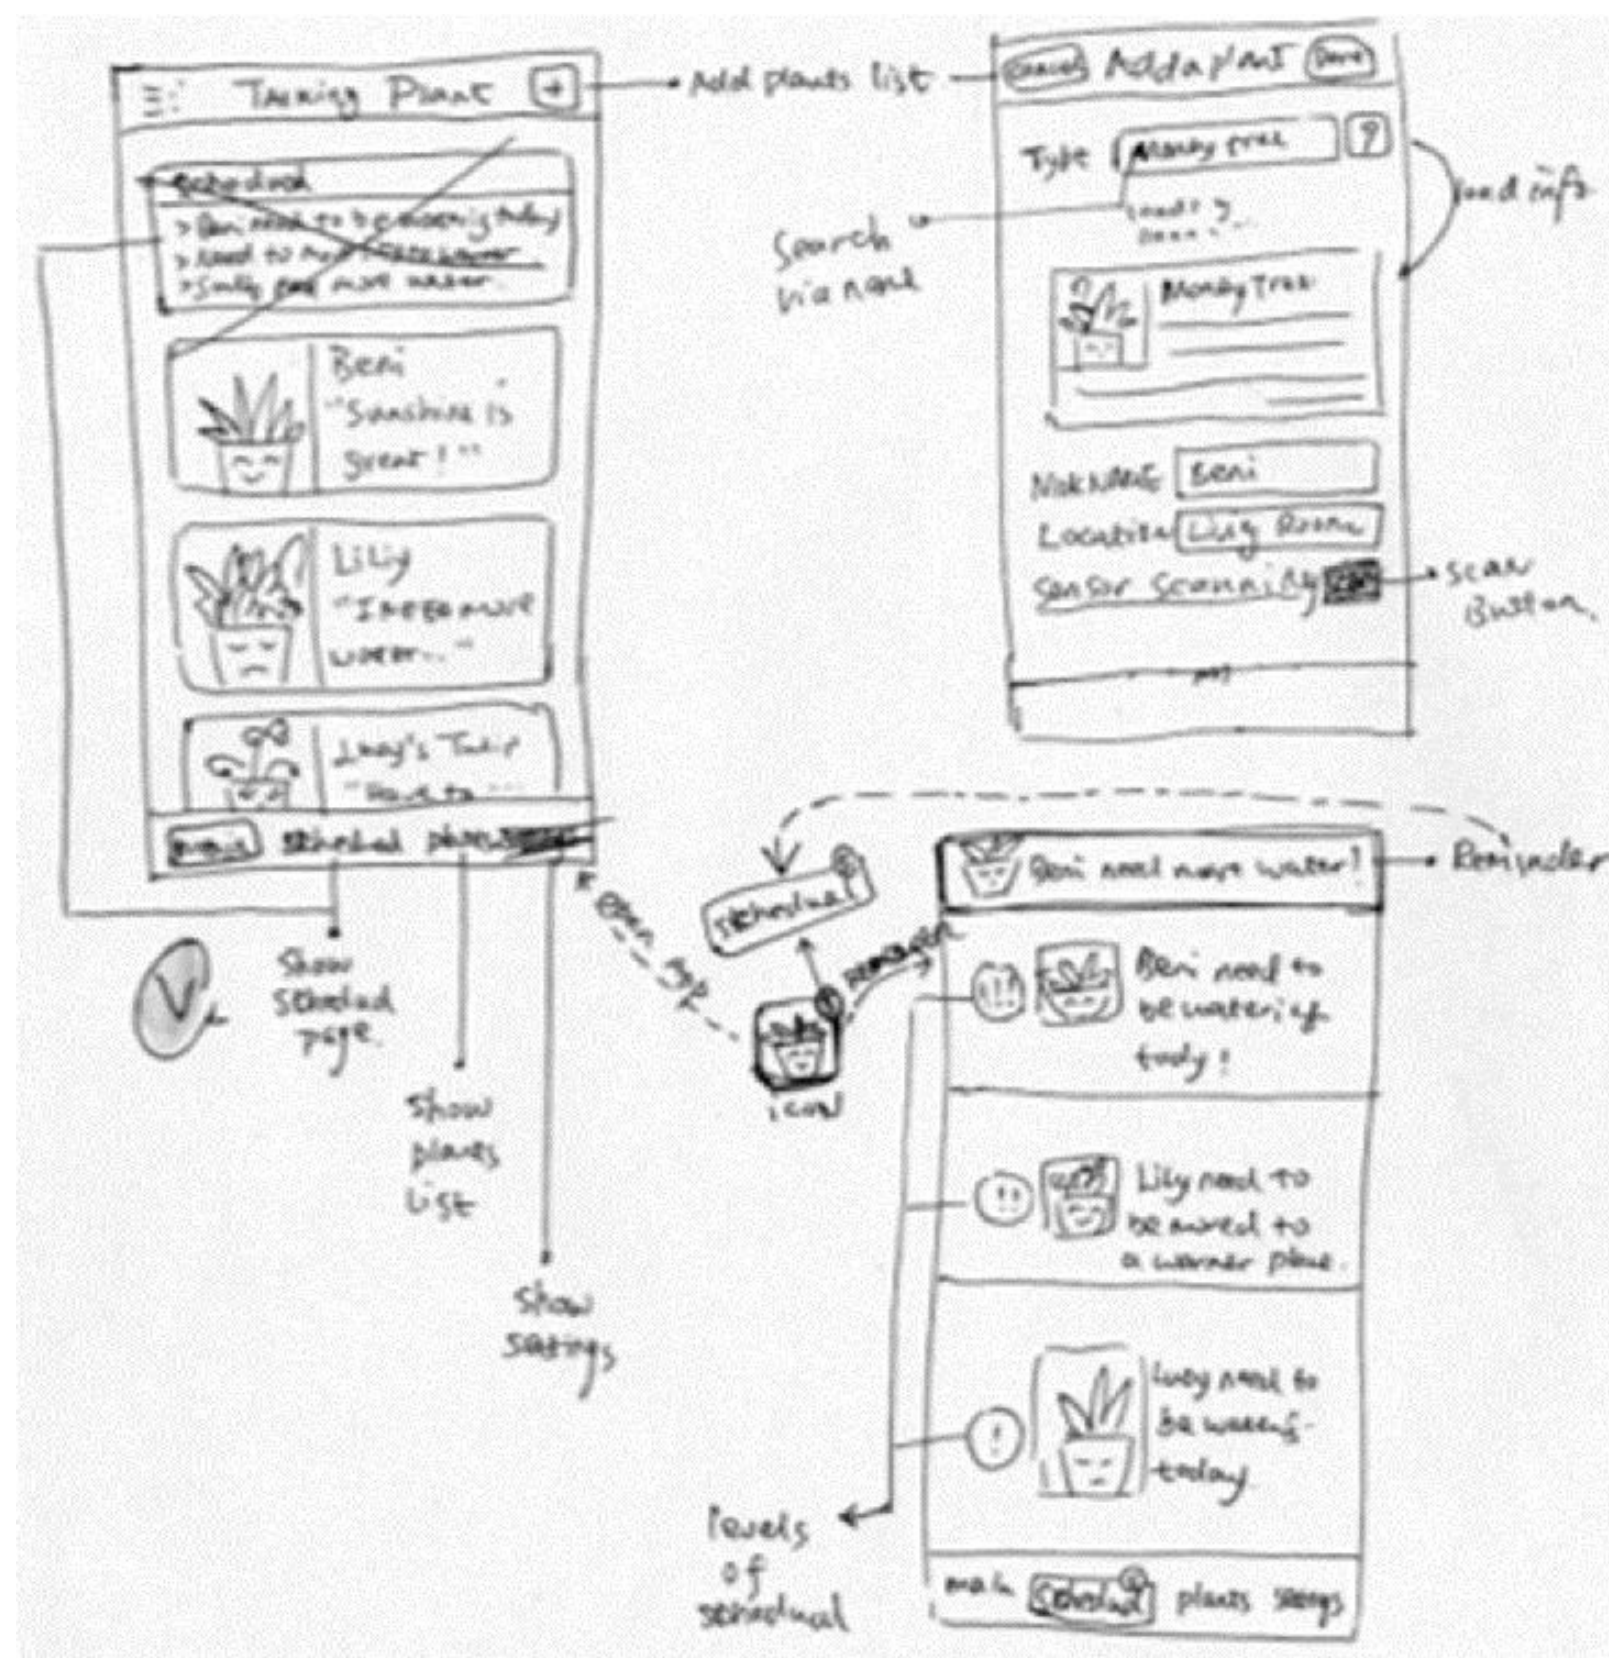 Talking Plant +
schedual
> Beni need to be watering today
> Need to
more water
Beni
"Sunshine is
great!"
LiLiy
"I need more
water..."
Lucy's Tulip
"Have to ...
main schedual plants
Show
schedual
page.
Show
plants
list
Show
settings
V
Add plants list
Cancel Add a plant Done
Type Money tree ?
load info
Search
via name
Money Tree
NickNAME Beni
Location Living Room
Sensor scanning
scan
Button.
open app
schedual
icon
Beni need more water!
Reminder
!!! Beni need to
be watering
tody!
!! Lily need to
be moved to
a warmer place.
! Lucy need to
be watering
today
levels
of
schedual
main schedual plants settings